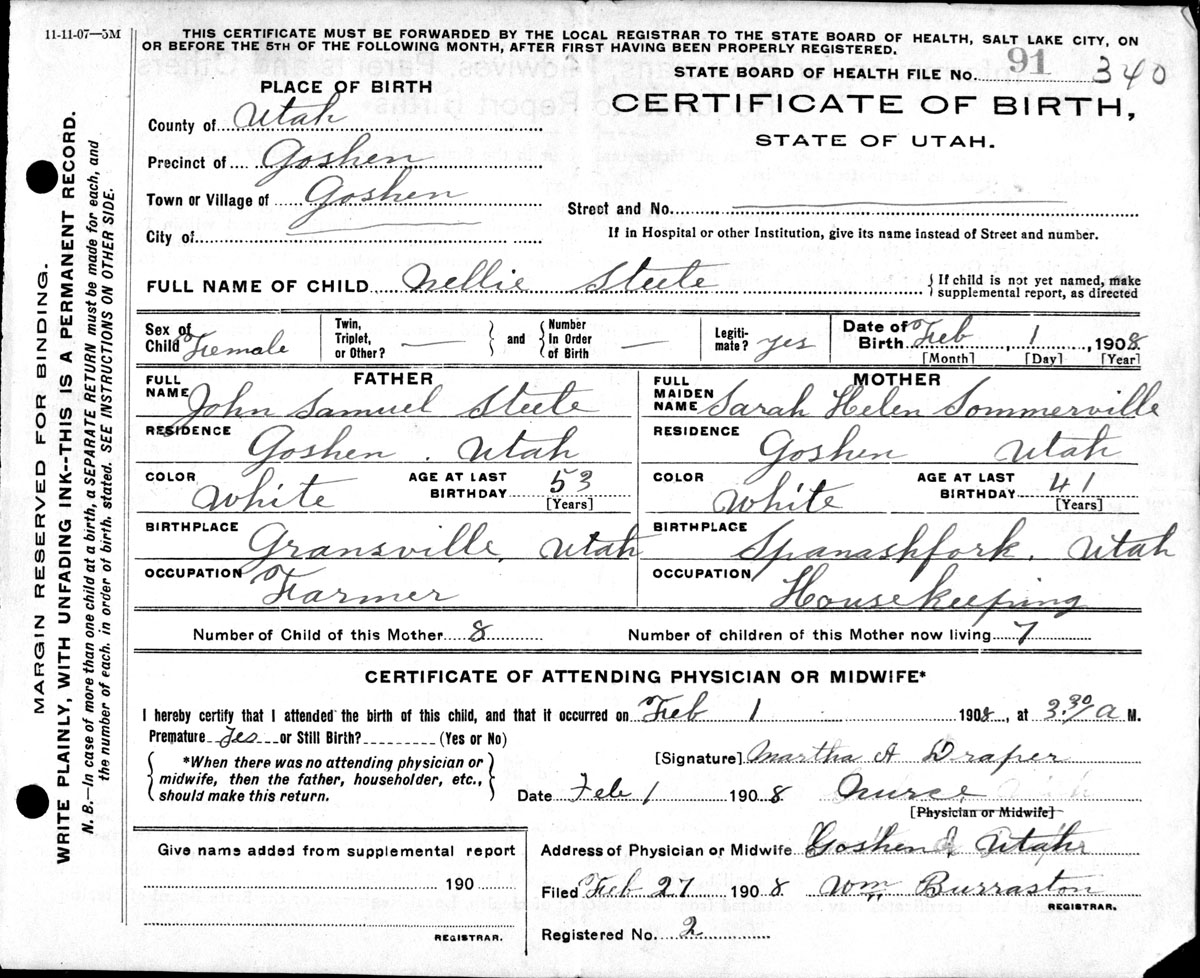 11-11-07—5M
THIS CERTIFICATE MUST BE FORWARDED BY THE LOCAL REGISTRAR TO THE STATE BOARD OF HEALTH, SALT LAKE CITY, ON
OR BEFORE THE 5TH OF THE FOLLOWING MONTH, AFTER FIRST HAVING BEEN PROPERLY REGISTERED.
STATE BOARD OF HEALTH FILE No. 91 340
PLACE OF BIRTH
CERTIFICATE OF BIRTH,
STATE OF UTAH.
County of Utah
Precinct of Goshen
Town or Village of Goshen
Street and No.
City of
If in Hospital or other Institution, give its name instead of Street and number.
FULL NAME OF CHILD Nellie Steele { If child is not yet named, make
supplemental report, as directed
Sex of Child Female Twin, Triplet, or Other? — } and { Number In Order of Birth — Legiti-mate? yes Date of Birth Feb 1, 1908.
[Month] [Day] [Year]
FATHER
FULL NAME John Samuel Steele
RESIDENCE Goshen. Utah
COLOR White AGE AT LAST BIRTHDAY 53 [Years]
BIRTHPLACE Gransville, Utah
OCCUPATION Farmer
MOTHER
FULL MAIDEN NAME Sarah Helen Sommerville
RESIDENCE Goshen Utah
COLOR White AGE AT LAST BIRTHDAY 41 [Years]
BIRTHPLACE Spanashfork. Utah
OCCUPATION Housekeeping
Number of Child of this Mother 8 Number of children of this Mother now living 7
CERTIFICATE OF ATTENDING PHYSICIAN OR MIDWIFE*
I hereby certify that I attended the birth of this child, and that it occurred on Feb 1 1908, at 3.30/a M.
Premature Yes or Still Birth? (Yes or No)
{ *When there was no attending physician or
midwife, then the father, householder, etc.,
should make this return. }
[Signature] Martha A Draper
Date Feb 1 1908 Nurce
[Physician or Midwife]
Give name added from supplemental report
190
REGISTRAR.
Address of Physician or Midwife Goshen, Utah
Filed Feb 27 1908 Wm Burraston
REGISTRAR.
Registered No. 2
MARGIN RESERVED FOR BINDING.
WRITE PLAINLY, WITH UNFADING INK--THIS IS A PERMANENT RECORD.
N. B.—In case of more than one child at a birth, a SEPARATE RETURN must be made for each, and
the number of each, in order of birth, stated. SEE INSTRUCTIONS ON OTHER SIDE.